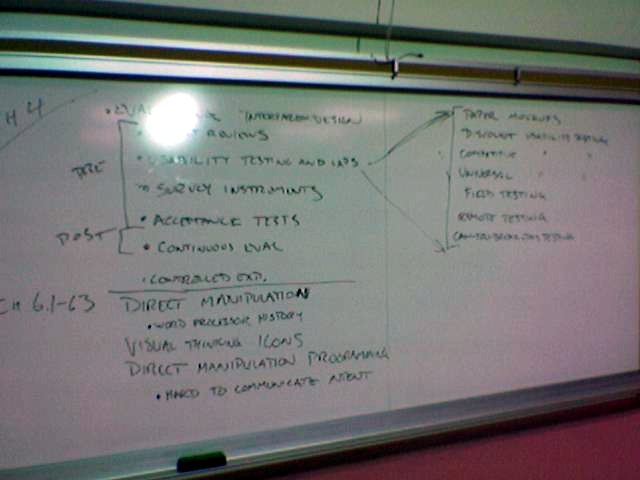 H 4
• EVAL INTERFACE DESIGN
REVIEWS
PRE
• USABILITY TESTING AND LABS
SURVEY INSTRUMENTS
• ACCEPTANCE TESTS
POST
• CONTINUOUS EVAL
• CONTROLLED EXP.
CH 6.1-6.3
DIRECT MANIPULATION
• WORD PROCESSOR HISTORY
VISUAL THINKING ICONS
DIRECT MANIPULATION PROGRAMING
• HARD TO COMMUNICATE INTENT
PAPER MOCKUPS
DISCOUNT USABILITY TESTING
COMPETITIVE " "
UNIVERSAL " "
FIELD TESTING
REMOTE TESTING
CAN-YOU-BREAK-THIS TESTING